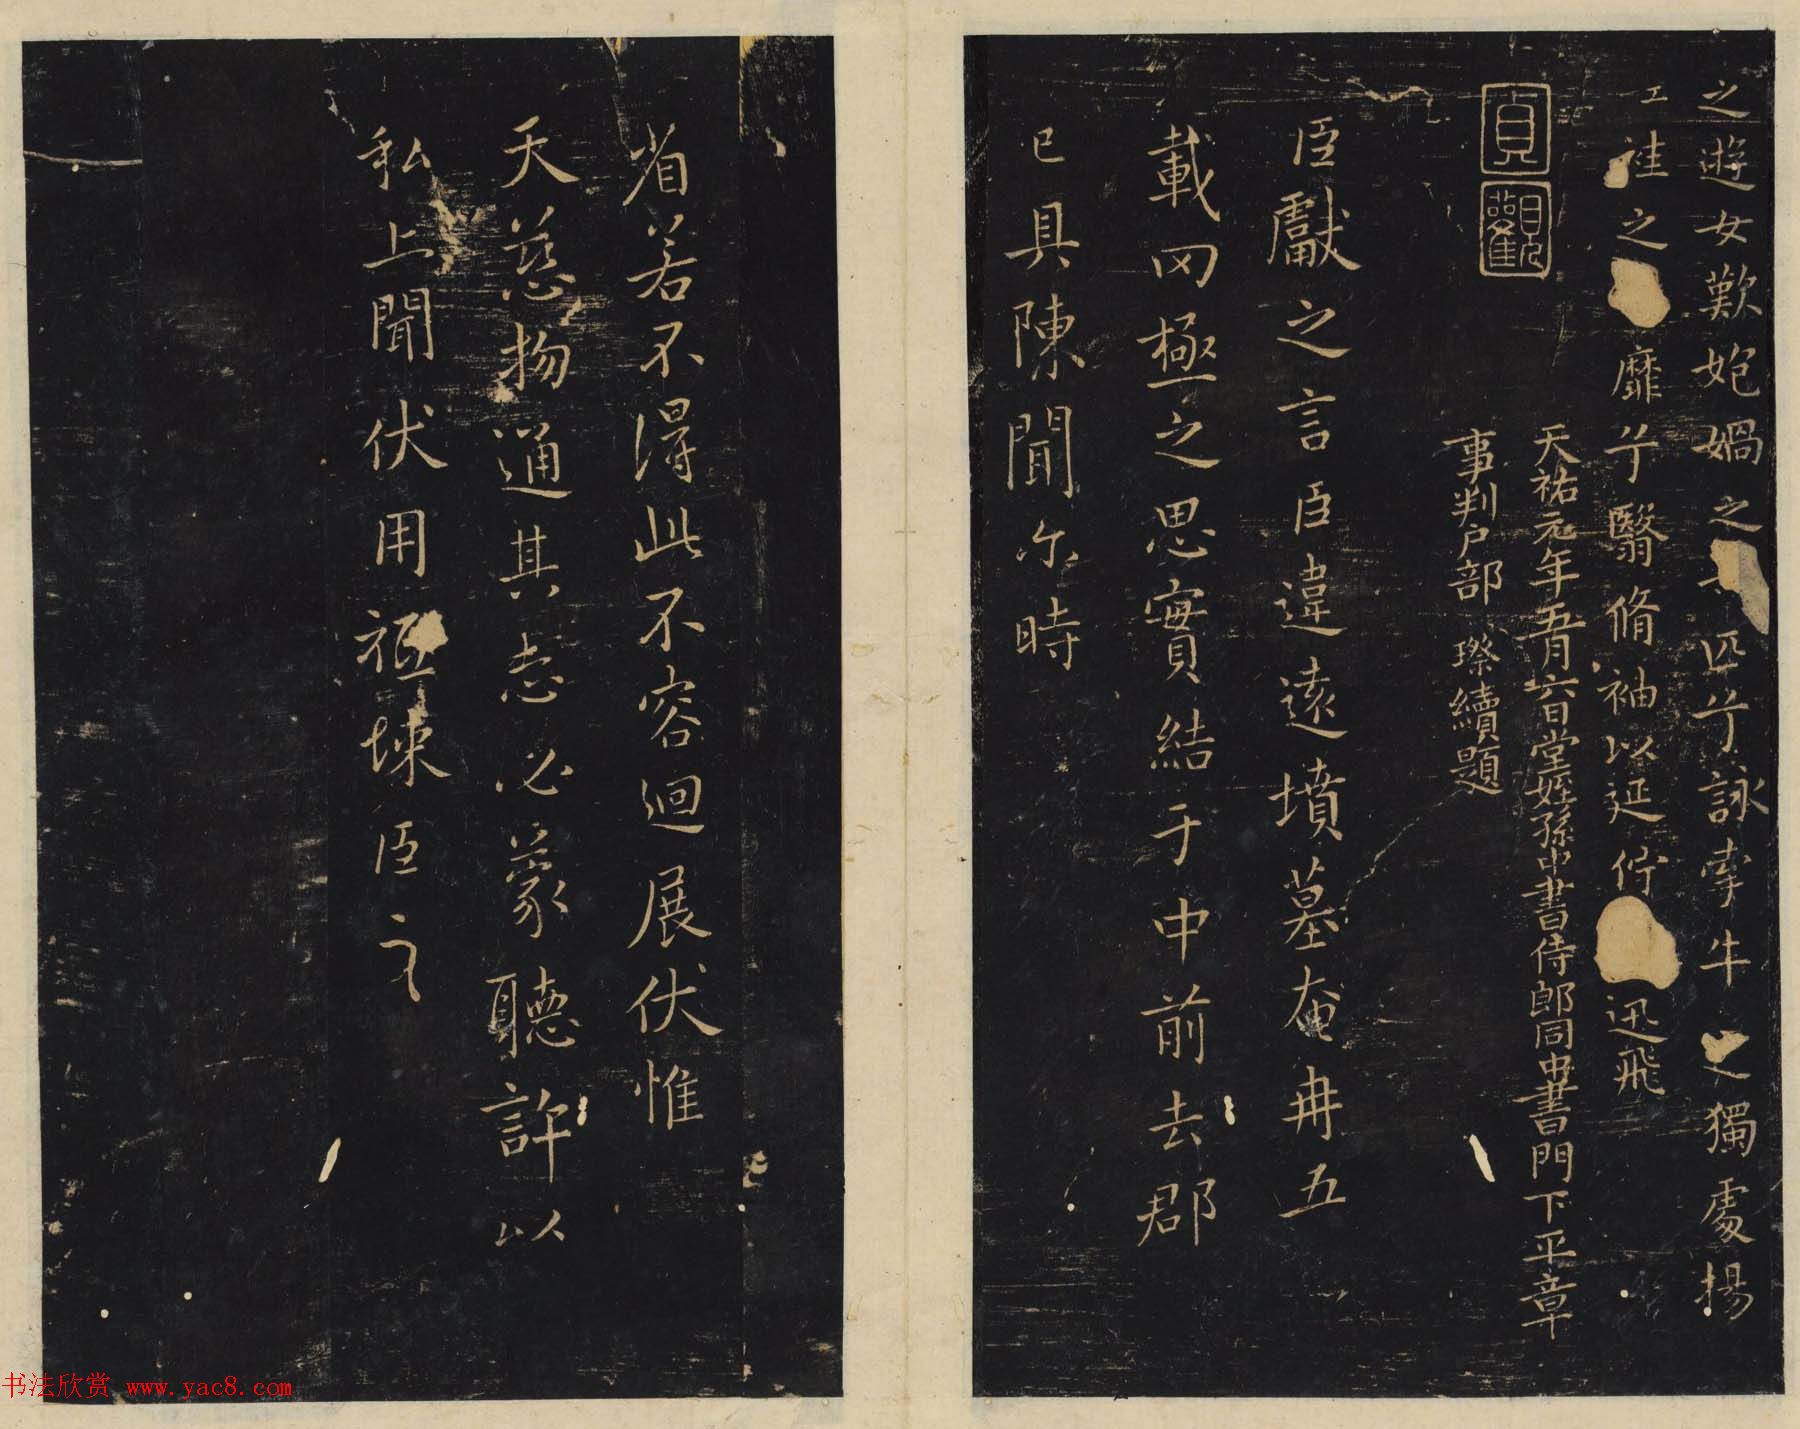 之遊女歎匏媧之無匹兮詠牽牛之獨處揚
袿之 靡兮翳脩袖以延佇 迅飛
貞觀
天祐元年五月六日堂姪孫中書侍郎同中書門下平章
事判户部 璨續題
臣獻之言臣違遠墳墓奄冉五
載罔極之思實結于中前去郡
已具陳聞尔時
省若不得此不容迴展伏惟
天慈物通其志必蒙聽許以
私上聞伏用祗悚臣之
书法欣赏 www.yac8.com